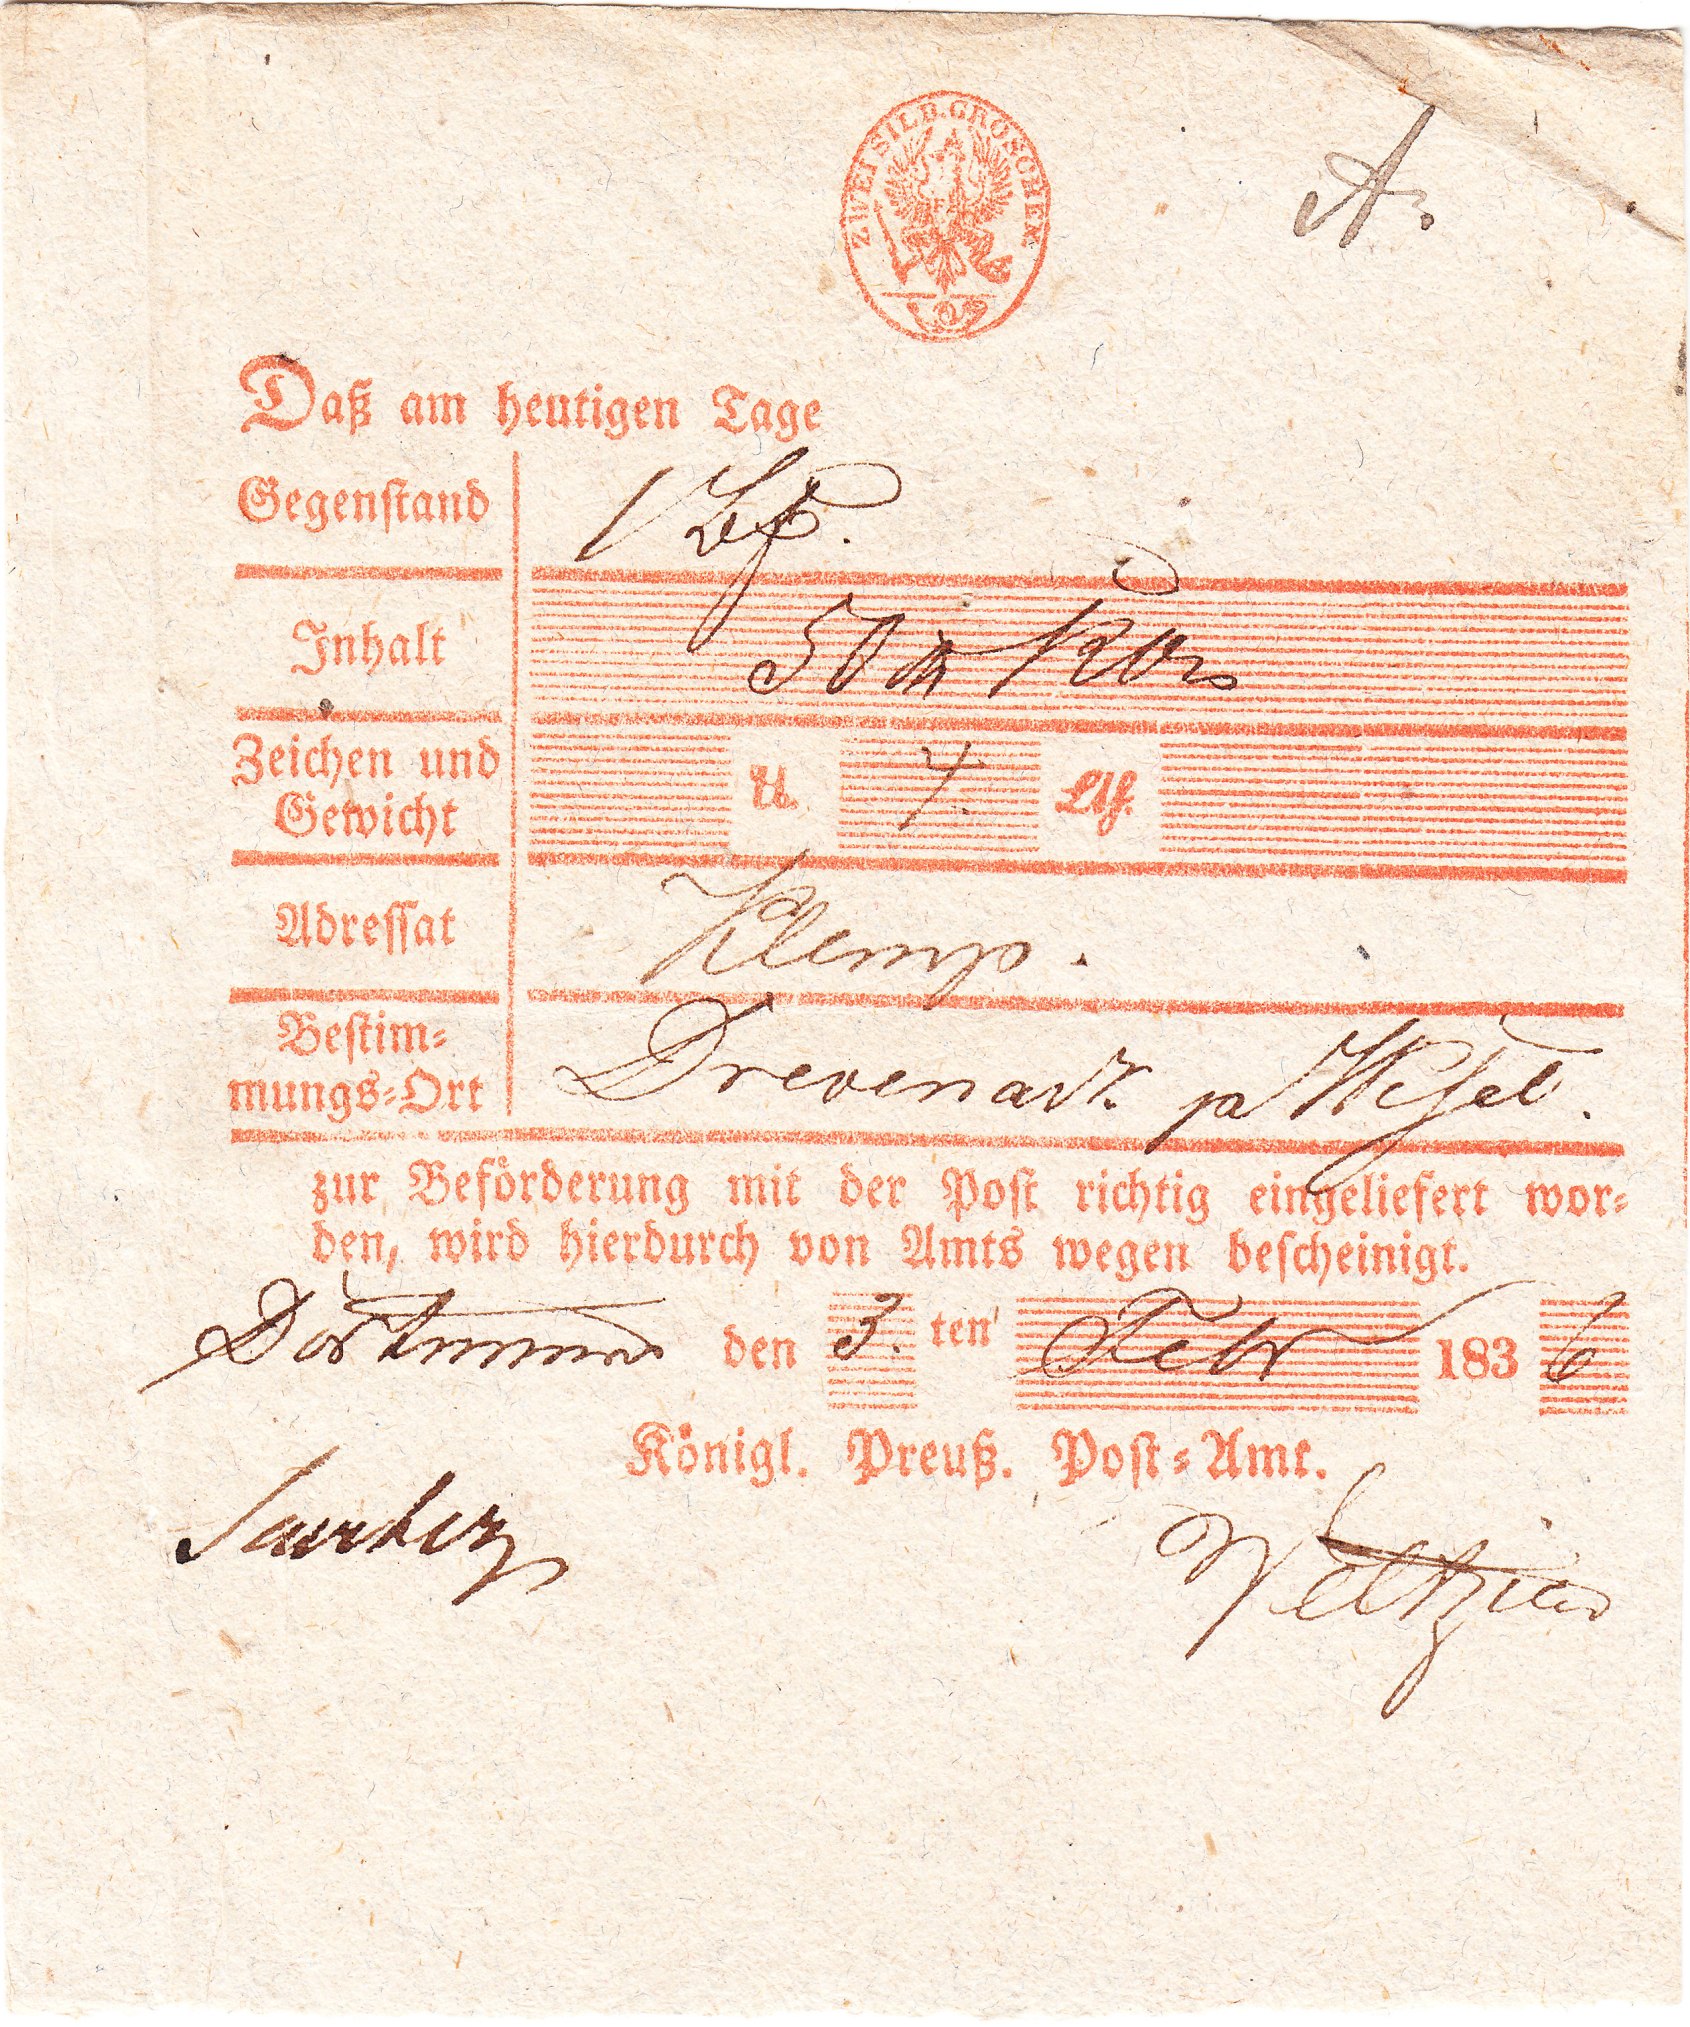 ZWEI SILB. GROSCHEN
2
Daß am heutigen Tage
Gegenstand 1 Bf.
Inhalt 50
Zeichen und
Gewicht ℔. 4. Lth.
Adressat Klemp.
Bestim-
mungs-Ort Drevenack pa Wesel.
zur Beförderung mit der Post richtig eingeliefert wor-
den, wird hierdurch von Amts wegen bescheinigt.
Dortmund den 3. ten Febr 1836
Königl. Preuß. Post-Amt.